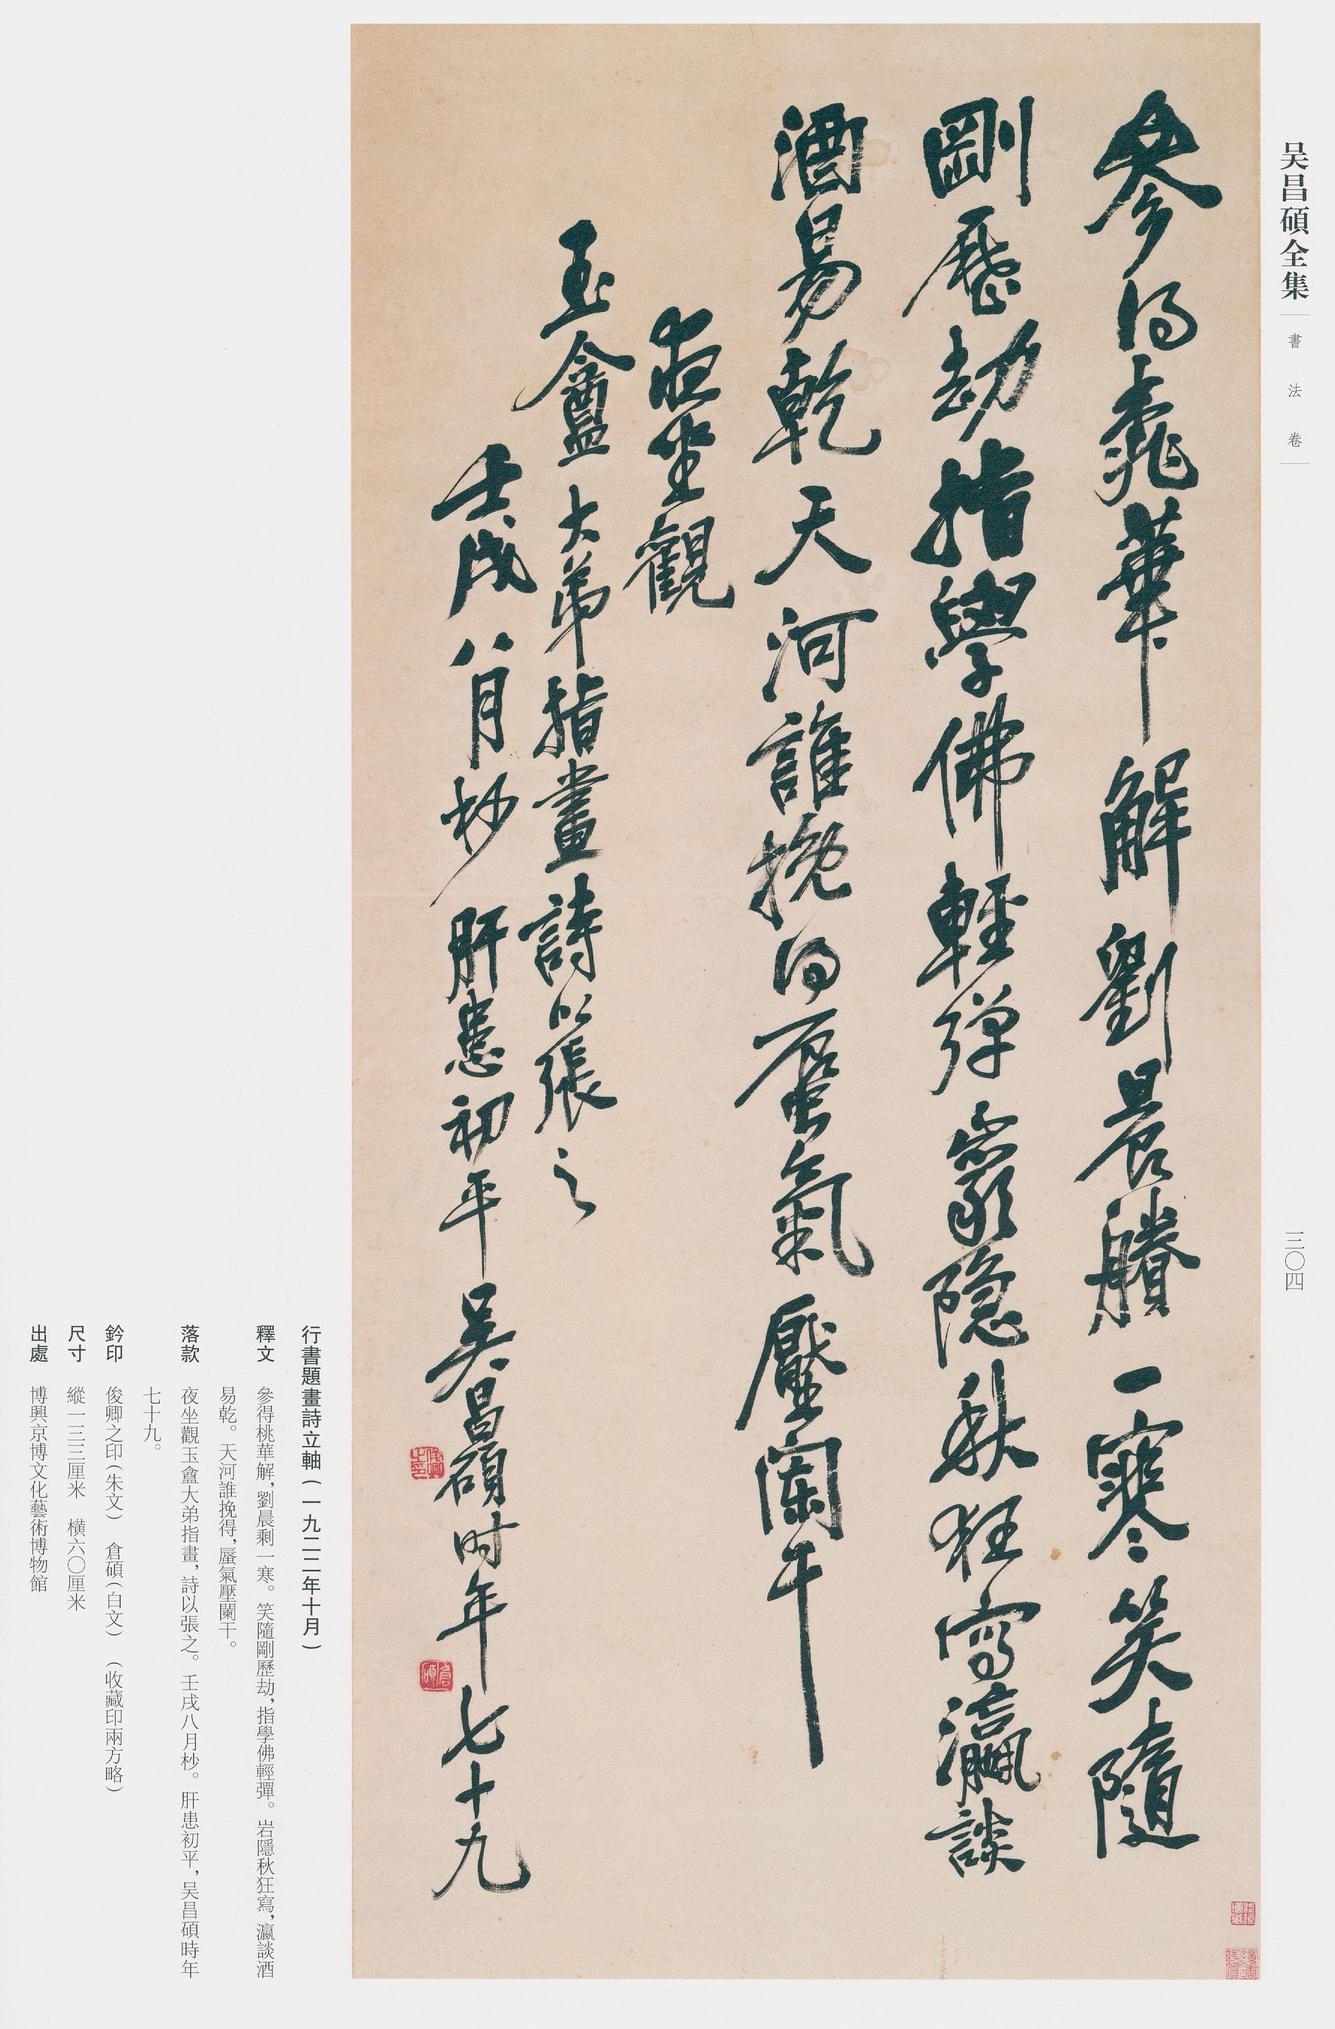 吴昌碩全集
書法卷
三〇四
參得桃華解劉晨賸一寒笑隨
剛歷劫指學佛輕彈嵓隱秋狂寫瀛談
酒易乾天河誰挽得蜃氣壓闌干
夜坐觀
玉盦大弟指畫詩以張之
壬戌八月杪肝患初平吳昌碩时年七十九
行書題畫詩立軸(一九二二年十月)
釋文 參得桃華解,劉晨剩一寒。笑隨剛歷劫,指學佛輕彈。岩隱秋狂寫,瀛談酒
易乾。天河誰挽得,蜃氣壓闌干。
落款 夜坐觀玉盦大弟指畫,詩以張之。壬戌八月杪。肝患初平,吴昌碩時年
七十九。
鈐印 俊卿之印(朱文) 倉碩(白文) (收藏印兩方略)
尺寸 縱一三三厘米 橫六〇厘米
出處 博興京博文化藝術博物館
俊卿之印
倉碩